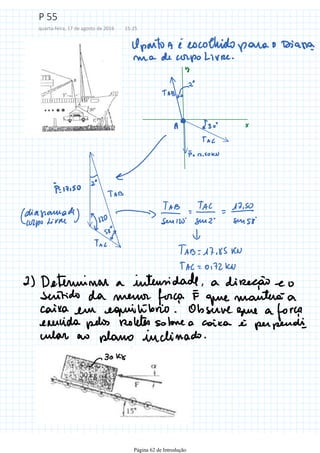 P 55
quarta-feira, 17 de agosto de 2016 15:25
O ponto A é escolhido para o Diagra
ma de corpo Livre.
y
2°
TAB
A
30°
x
TAC
P= 17,50KN
P=17,50
2°
TAB
120
58°
TAC
(diagrama de
corpo Livre)
TAB/sen120° = TAC/sen2° = 17,50/sen58°
TAB= 17,85 KN
TAC = 0,72 KN
2) Determinar a intensidade, a direção e o
sentido da menor força F que manterá a
caixa em equilíbrio. Observe que a força
exercida pelos Roletes sobre a caixa é perpendi
cular ao plano inclinado.
30 Kg
α
F
15°
Página 62 de Introdução